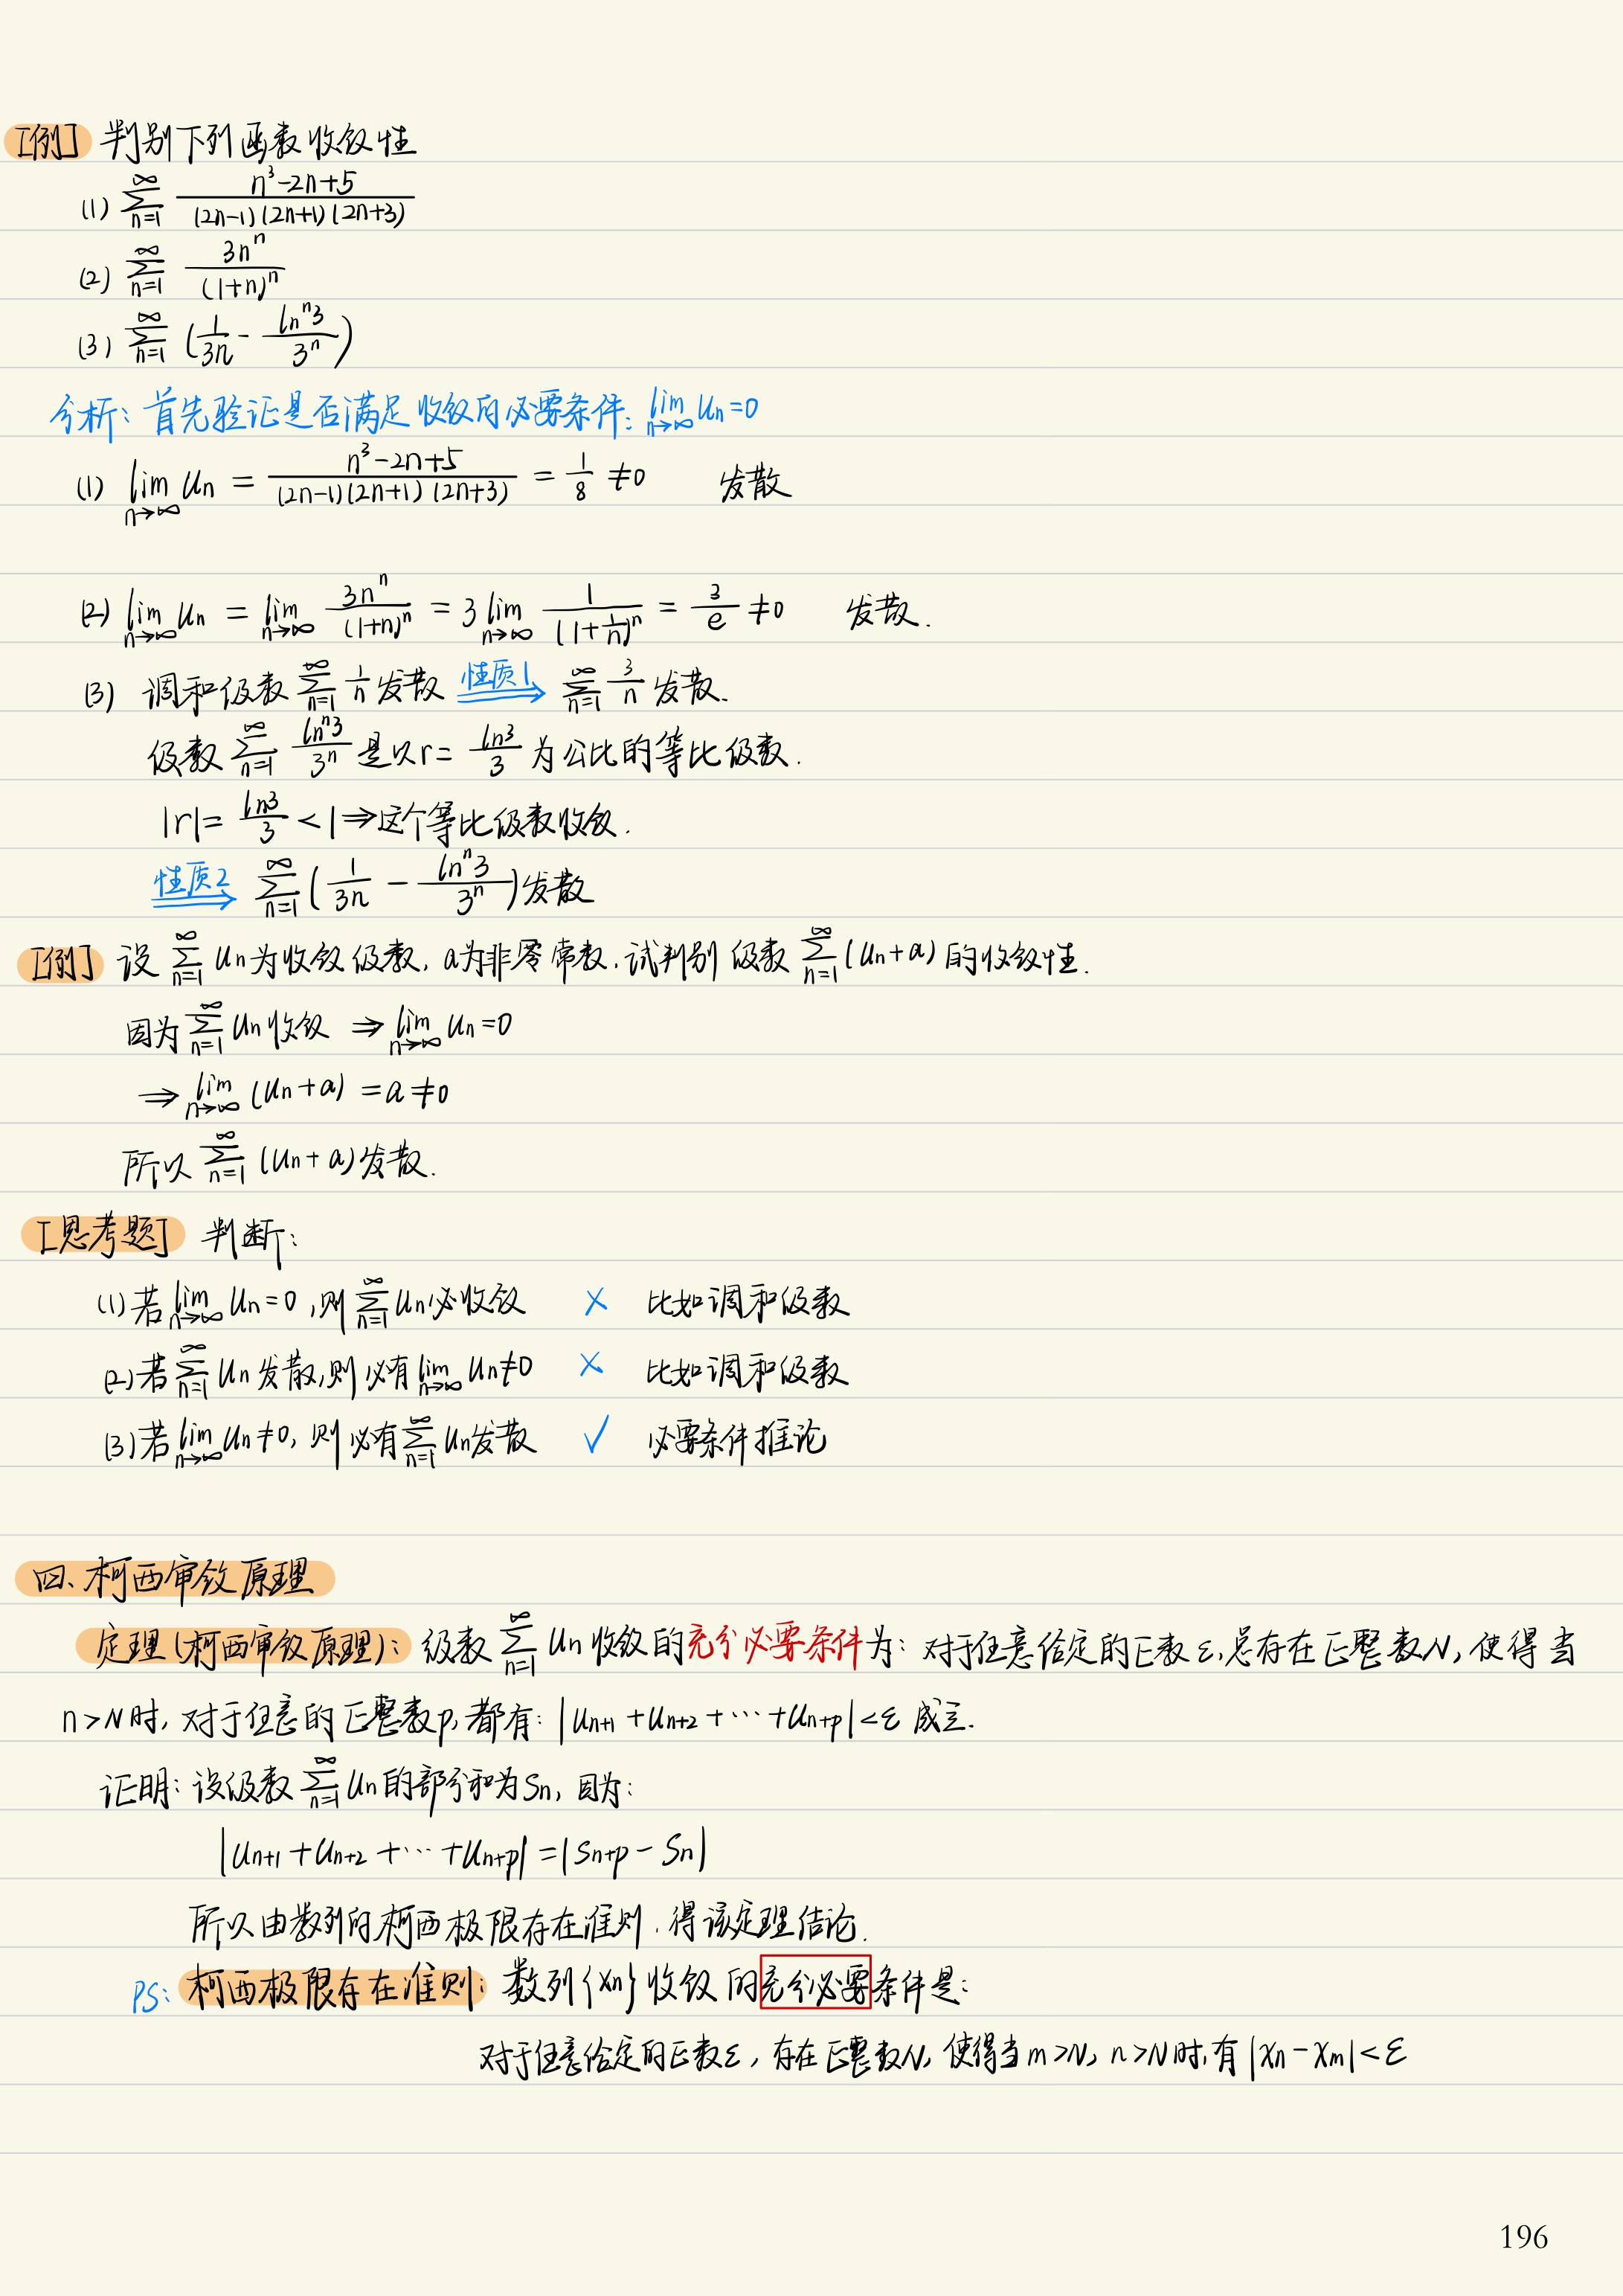 [例] 判别下列函数收敛性
(1) ∑_{n=1}^{∞} (n³-2n+5)/((2n-1)(2n+1)(2n+3))
(2) ∑_{n=1}^{∞} 3nⁿ/(1+n)ⁿ
(3) ∑_{n=1}^{∞} (1/3n - lnⁿ3/3ⁿ)
分析: 首先验证是否满足收敛的必要条件: lim_{n→∞} Un=0
(1) lim_{n→∞} Un = (n³-2n+5)/((2n-1)(2n+1)(2n+3)) = 1/8 ≠0 发散
(2) lim_{n→∞} Un = lim_{n→∞} 3nⁿ/(1+n)ⁿ = 3 lim_{n→∞} 1/(1+1/n)ⁿ = 3/e ≠0 发散.
(3) 调和级数 ∑_{n=1}^{∞} 1/n 发散 性质1⇒ ∑_{n=1}^{∞} 3/n 发散.
级数 ∑_{n=1}^{∞} lnⁿ3/3ⁿ 是以r= ln3/3 为公比的等比级数.
|r|= ln3/3 <1⇒这个等比级数收敛.
性质2⇒ ∑_{n=1}^{∞} (1/3n - lnⁿ3/3ⁿ)发散
[例] 设 ∑_{n=1}^{∞} Un为收敛级数, a为非零常数, 试判别 级数 ∑_{n=1}^{∞} (Un+a) 的收敛性.
因为 ∑_{n=1}^{∞} Un收敛 ⇒ lim_{n→∞} Un=0
⇒ lim_{n→∞} (Un+a) =a≠0
所以 ∑_{n=1}^{∞} (Un+a)发散.
[思考题] 判断:
(1)若 lim_{n→∞} Un=0,则 ∑_{n=1}^{∞} Un必收敛 × 比如调和级数
(2)若 ∑_{n=1}^{∞} Un发散,则必有 lim_{n→∞} Un≠0 × 比如调和级数
(3)若 lim_{n→∞} Un≠0, 则必有 ∑_{n=1}^{∞} Un发散 ✓ 必要条件推论
四、柯西审敛原理
定理(柯西审敛原理): 级数 ∑_{n=1}^{∞} Un收敛的充分必要条件为: 对于任意给定的正数ε,总存在正整数N, 使得当
n>N时, 对于任意的正整数p, 都有: |U_{n+1}+U_{n+2}+⋯+U_{n+p}|<ε 成立.
证明: 设级数 ∑_{n=1}^{∞} Un的部分和为Sn, 因为:
|U_{n+1}+U_{n+2}+⋯+U_{n+p}|=|S_{n+p}-Sn|
所以由数列的柯西极限存在准则, 得该定理结论.
PS: 柯西极限存在准则: 数列{xn}收敛的充分必要条件是:
对于任意给定的正数ε, 存在正整数N, 使得当m>N, n>N时,有|xn-xm|<ε
196